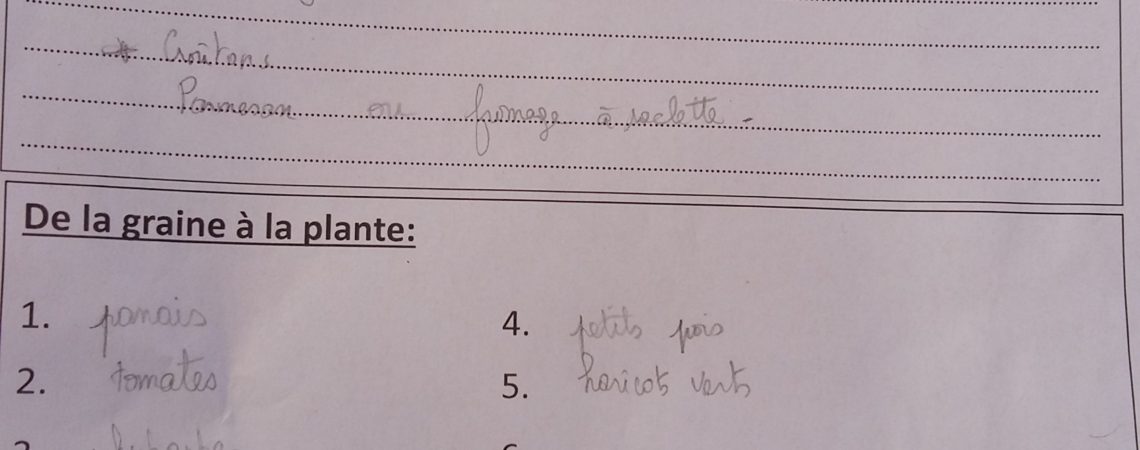 * Croûtons
Parmesan ou fromage à raclette.
De la graine à la plante:
1. panais
4. petits pois
2. tomates
5. haricots verts